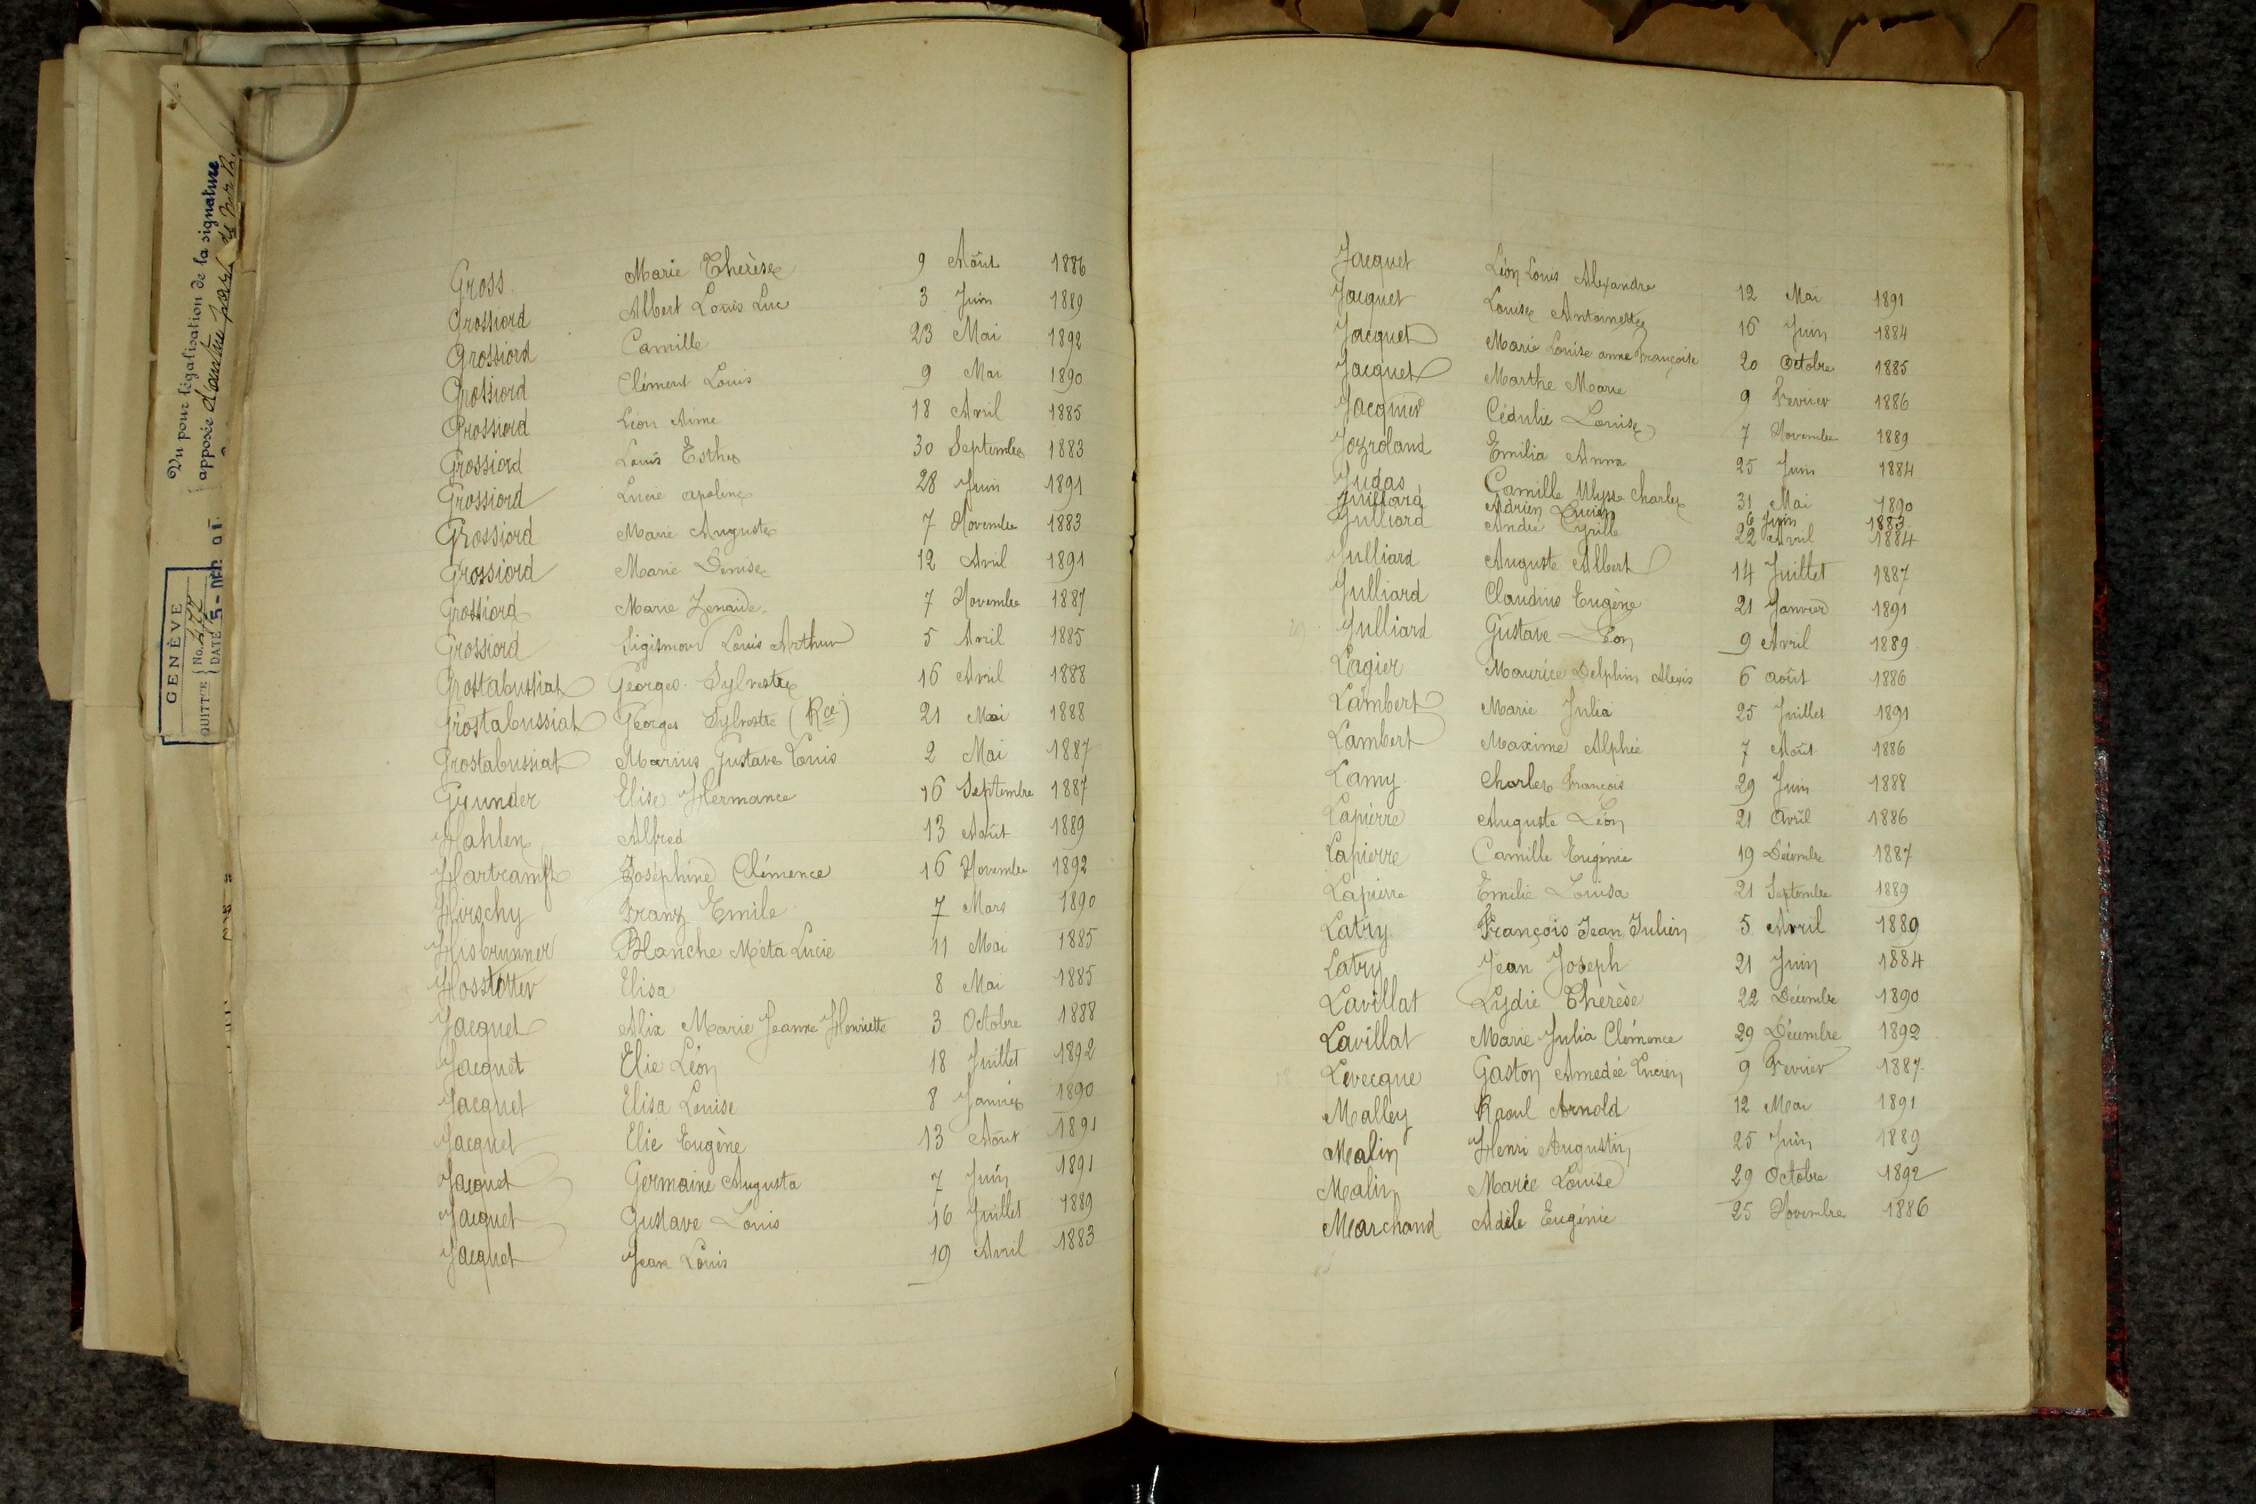 Vu pour légalisation de la signature
apposée d'autre part
GENÈVE
QUITTE No. 477
DATE 5-
Gross Marie Therèse 9 Août 1886
Grossiord Albert Louis Luc 3 Juin 1889
Grossiord Camille 23 Mai 1892
Grossiord Clément Louis 9 Mai 1890
Grossiord Léon Aimé 18 Avril 1885
Grossiord Louis Esther 30 Septembre 1883
Grossiord Lucie Apoline 28 Juin 1891
Grossiord Marie Auguste 7 Novembre 1883
Grossiord Marie Denise 12 Avril 1891
Grossiord Marie Zenaide 7 Novembre 1887
Grossiord Sigismond Louis Arthur 5 Avril 1885
Grostabussiat Georges Sylvestre 16 Avril 1888
Grostabussiat Georges Sylvestre (Rce) 21 Mai 1888
Grostabussiat Marius Gustave Louis 2 Mai 1887
Grunder Elise Hermance 16 Septembre 1887
Hahlen Alfred 13 Août 1889
Hartramft Joséphine Clémence 16 Novembre 1892
Hirschy Franz Emile 7 Mars 1890
Hisbrunner Blanche Méta Lucie 11 Mai 1885
Hosstotter Elisa 8 Mai 1885
Jacquet Alix Marie Jeanne Henriette 3 Octobre 1888
Jacquet Elie Léon 18 Juillet 1892
Jacquet Elisa Louise 8 Janvier 1890
Jacquet Elie Eugène 13 Août 1891
Jacquet Germaine Augusta 7 Juin 1891
Jacquet Gustave Louis 16 Juillet 1889
Jacquet Jean Louis 19 Avril 1883
Jacquet Léon Louis Alexandre 12 Mai 1891
Jacquet Louise Antoinette 16 Juin 1884
Jacquet Marie Louise anne Françoise 20 Octobre 1885
Jacquet Marthe Marie 9 Fevrier 1886
Jacquier Cédulie Louise 7 Novembre 1889
Jozroland Emilia Anna 25 Juin 1884
Judas Camille Ulysse Charles 31 Mai 1890
Juilliard Adrien Lucien 6 Juin 1883
Julliard André Cyrille 22 Avril 1884
Julliard Auguste Albert 14 Juillet 1887
Julliard Claudius Eugène 21 Janvier 1891
Julliard Gustave Léon 9 Avril 1889
Lagier Maurice Delphin Alexis 6 août 1886
Lambert Marie Julia 25 Juillet 1891
Lambert Maxime Alphée 7 Août 1886
Lamy Charles François 29 Juin 1888
Lapierre Auguste Léon 21 Avril 1886
Lapierre Camille Eugénie 19 Décembre 1887
Lapierre Emilie Louisa 21 Septembre 1889
Latry François Jean Julien 5 Avril 1889
Latry Jean Joseph 21 Juin 1884
Lavillat Lydie Therèse 22 Décembre 1890
Lavillat Marie Julia Clémence 29 Décembre 1892
Levecque Gaston Amedée Lucien 9 Fevrier 1887
Malley Raoul Arnold 12 Mai 1891
Malin Henri Augustin 25 Juin 1889
Malin Marie Louise 29 Octobre 1892
Marchand Adèle Eugénie 25 Novembre 1886